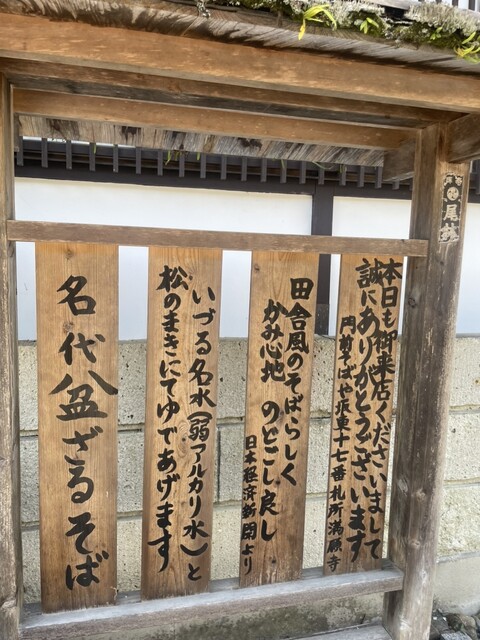 本日も御来店くださいまして
誠にありがとうございます
門前そばや坂東十七番札所満願寺
田舎風のそばらしく
かみ心地 のどごし良し
日本経済新聞より
いづる名水(弱アルカリ水)と
松のまきにてゆであげます
名代盆ざるそば